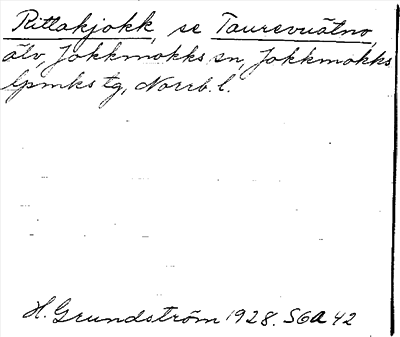 Pittakjokk, se Taurevuätno,
älv, Jokkmokks sn, Jokkmokks
lpmks tg, Norrb. l.
H. Grundström 1928. SOA 42